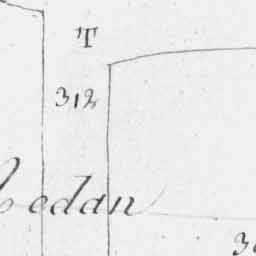 T
312
edan
3